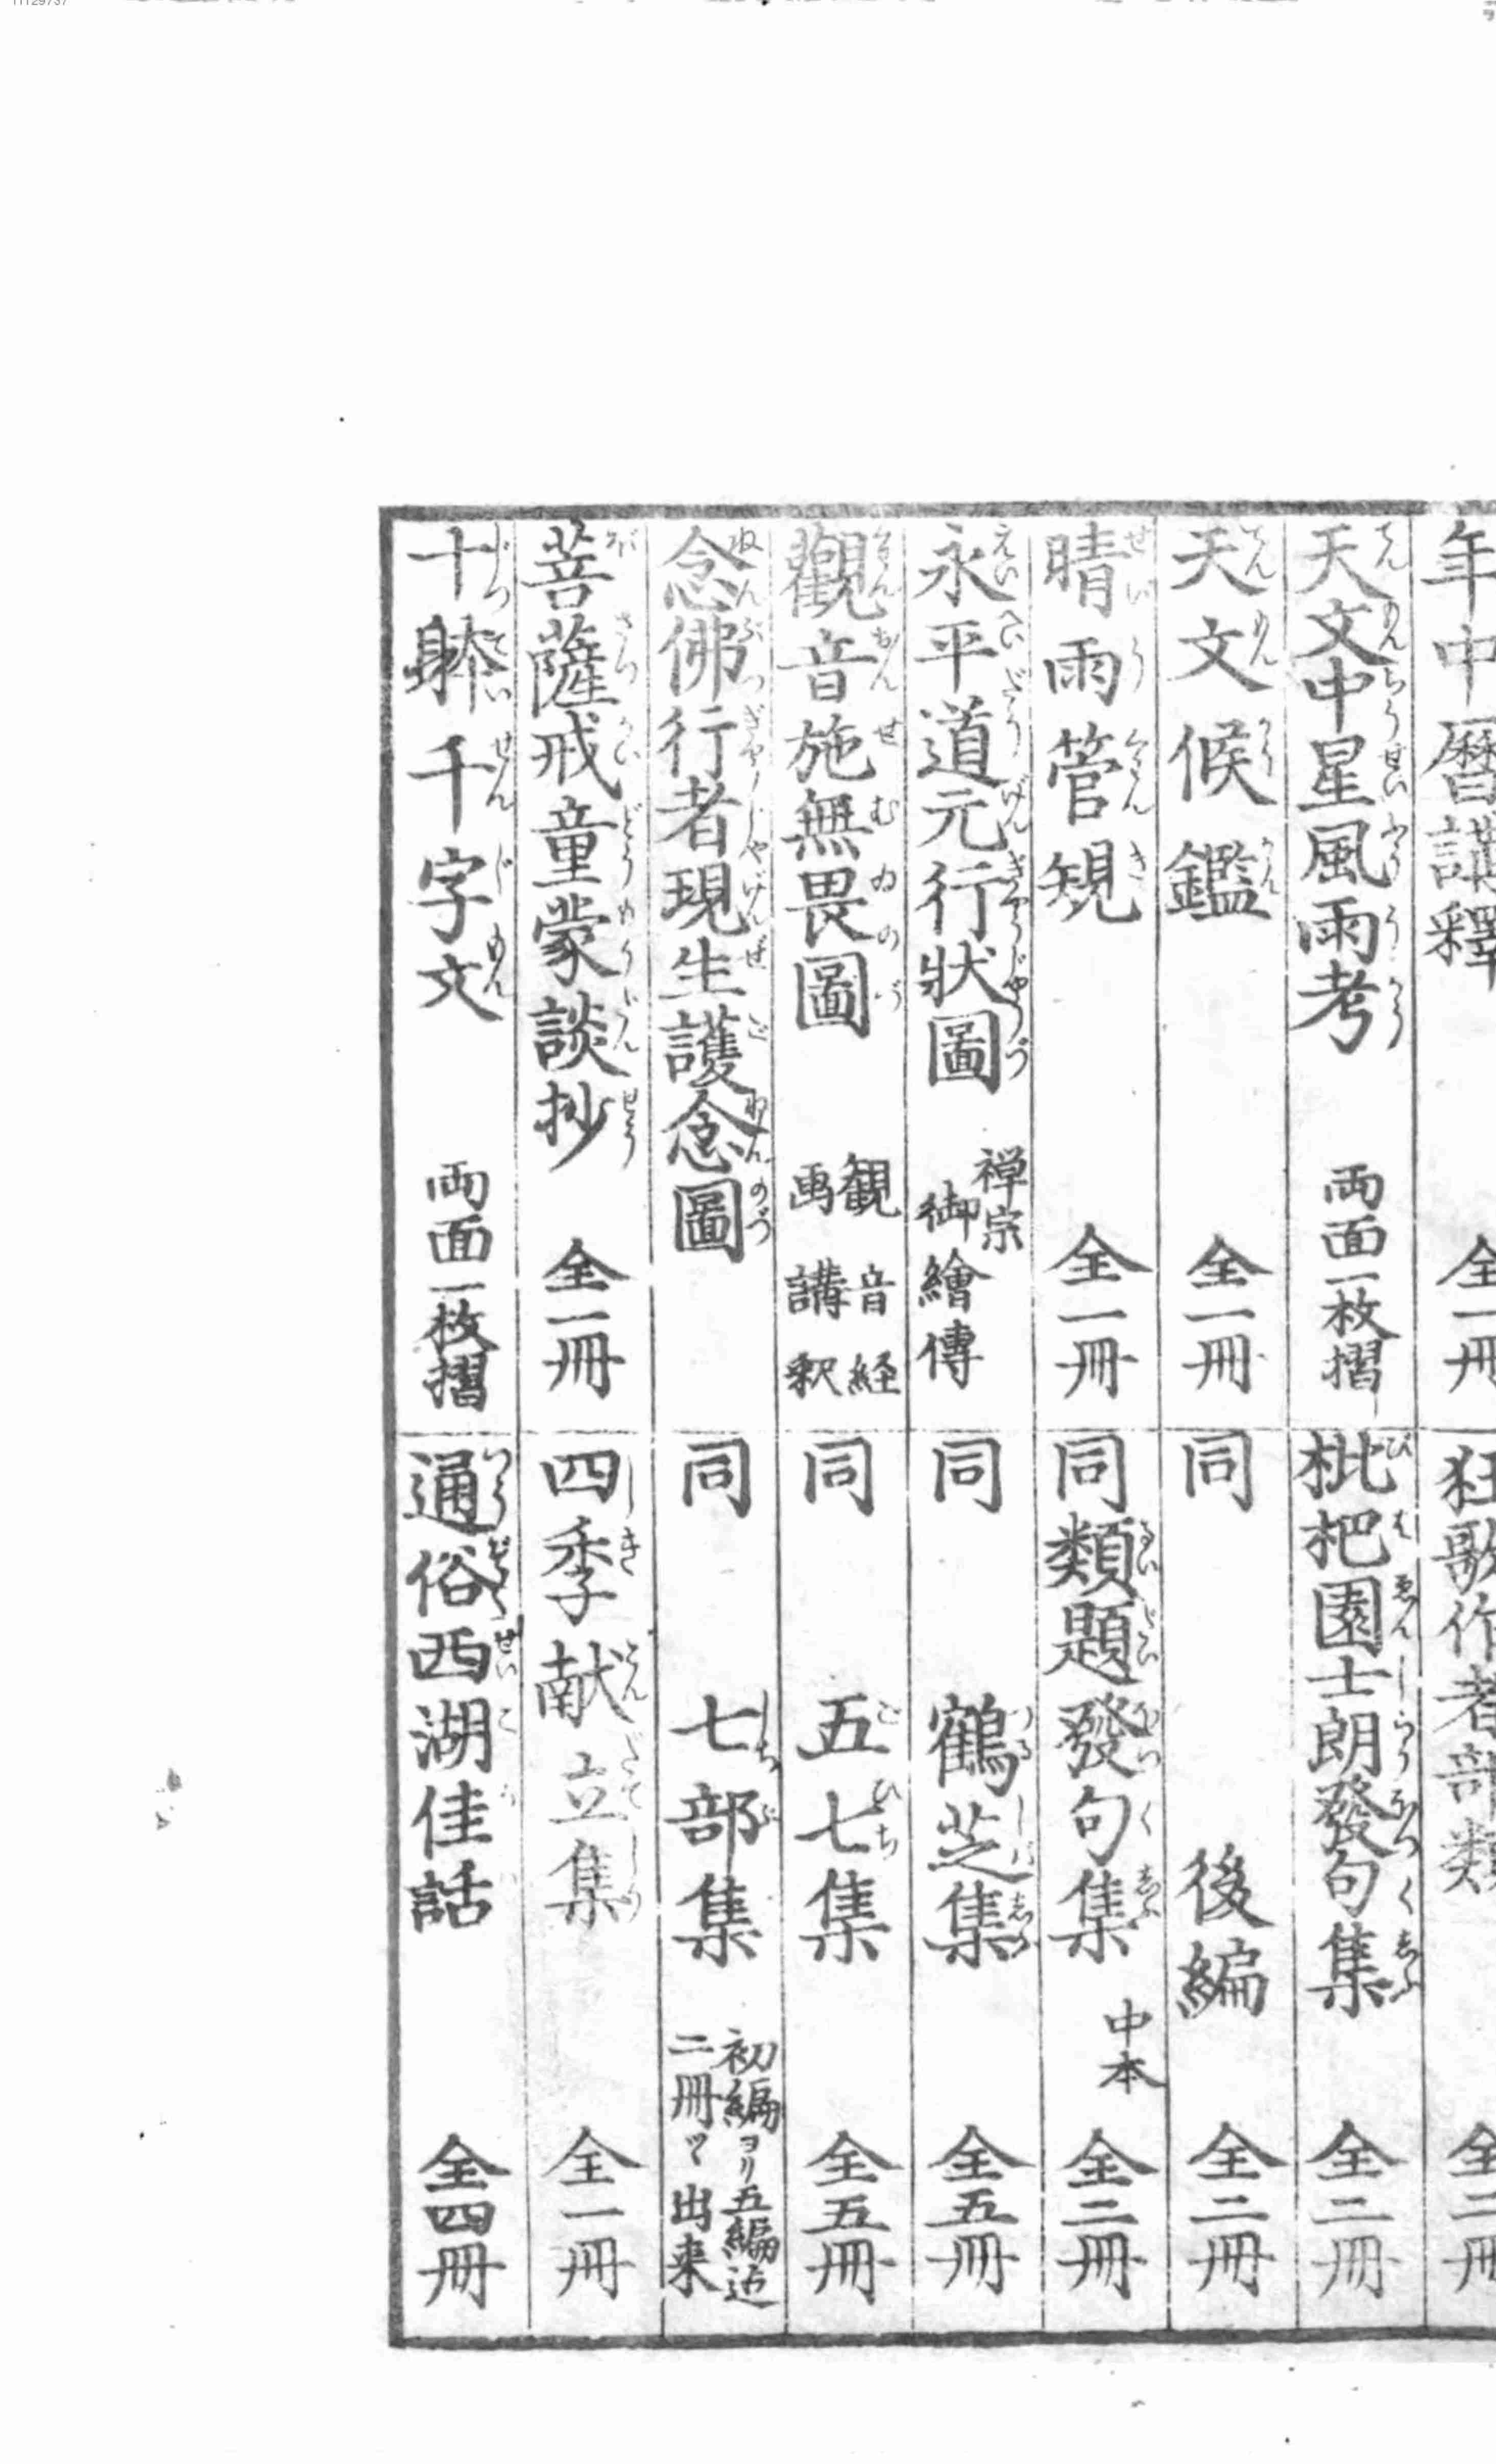 年中暦講釋 全一冊
天文中星風雨考 両面一枚摺
天文候鑑 全一冊
晴雨管規 全一冊
永平道元行狀圖 禅宗御繪傳
觀音施無畏圖 観音経画講釈
念佛行者現生護念圖
菩薩戒童蒙談抄 全一冊
十躰千字文 両面一枚摺
狂歌作者部類 全二冊
枇杷園士朗發句集 全二冊
同 後編 全二冊
同類題發句集 中本 全二冊
同 鶴芝集 全五冊
同 五七集 全五冊
同 七部集 初編ヨリ五編迠二冊ツヽ出来
四季献立集 全一冊
通俗西湖佳話 全四冊